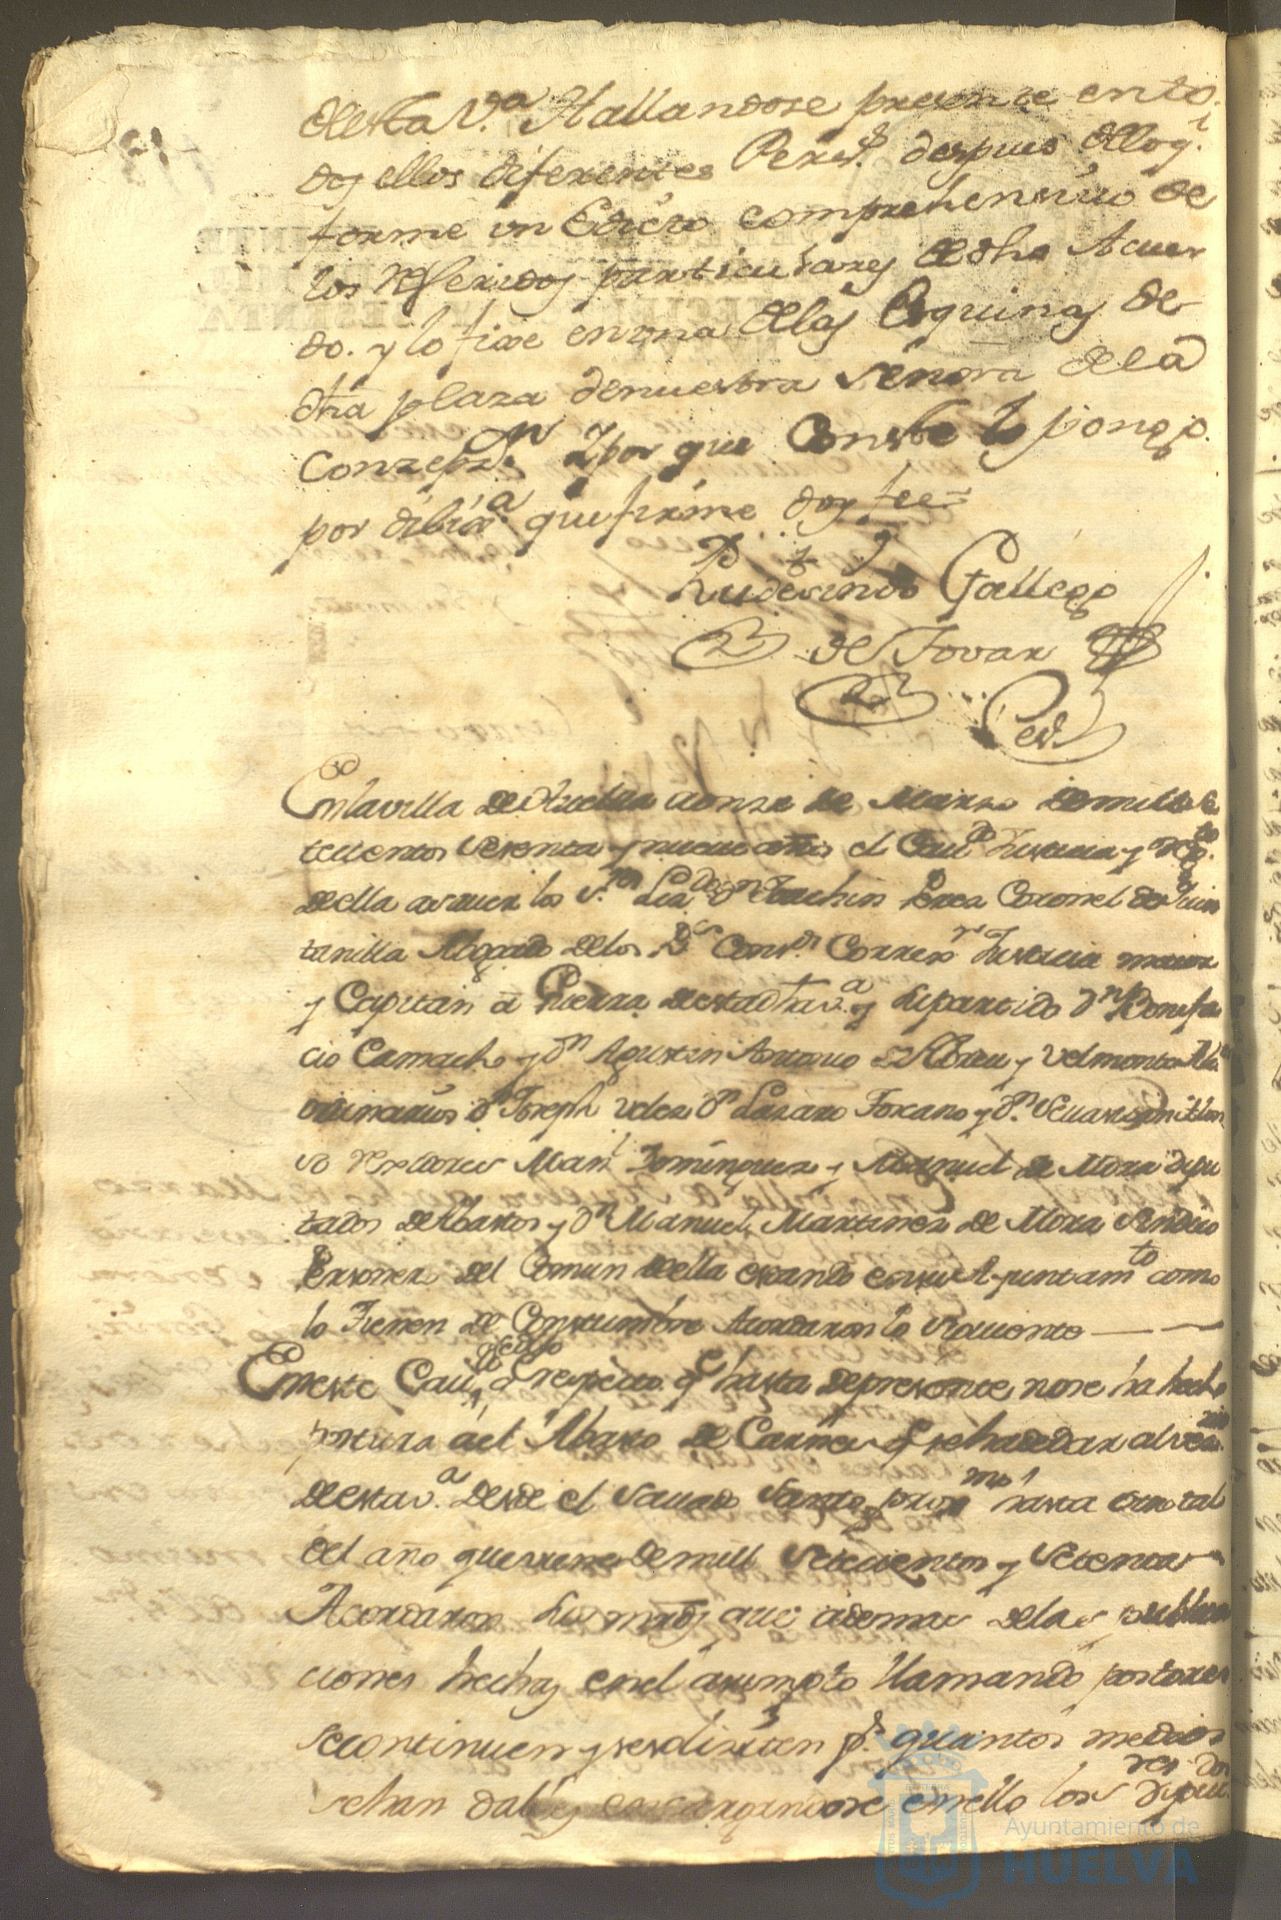 desta V.a Hallandose presente en to
dos ellos diferentes Pers.s despues dello q.l
forme un Edicto comprehensivo de
los Referidos particulares de dho Acuer
do. y lo fixe en una de las Esquinas de
dha plaza de nuestra Señora de la
Conzepz.n Y por que Conste lo pongo
por dilix.a que firme doy fee=
Rudesindo Gallego
de Tovar
es.no
En la villa de Huelva a onze de Marzo de mill se
tecientos sesenta y nueve años el Cau.do Justicia y Reg.to
della a saver los S.res Liz.do D.n Joachin Perez Coronel de Quin
tanilla Abogado de los R.s Cons.s Correx.or Justicia mayor
y Capitan a Guerra desta dha v.a y su partido D.n Bonifa
cio Camacho y D.n Agustin Antonio de Abreu y Velmonte Al.s
ordinarios D.n Joseph Velez D.n Lazaro Toscano y D.n Sevastian
Rexidores Man.l Dominguez y Manuel de Mora dipu
tados de Abastos y D.n Manuel Martinez de Mora Sindico
Personer del Comun della estando en su Ayuntam.to como
lo Tienen de Constumbre Acordaron lo siguiente
En este Cau.do a respecto q.e hasta de presente no se ha hecho
postura a el Abasto de Carnes q.e se ha de dar al vezin.rio
de esta v.a desde el Savado Santo prox.mo hasta otro tal
del año que viene de mill Setecientos y Setenta
Acordaron sus mrds que ademas de las publica
ciones hechas en el asumpto llamando postores
se continuen y se soliziten p.r quantos medios
se han dables encargandose en ello los S.res dos Dipu
Ayuntamiento de
HUELVA